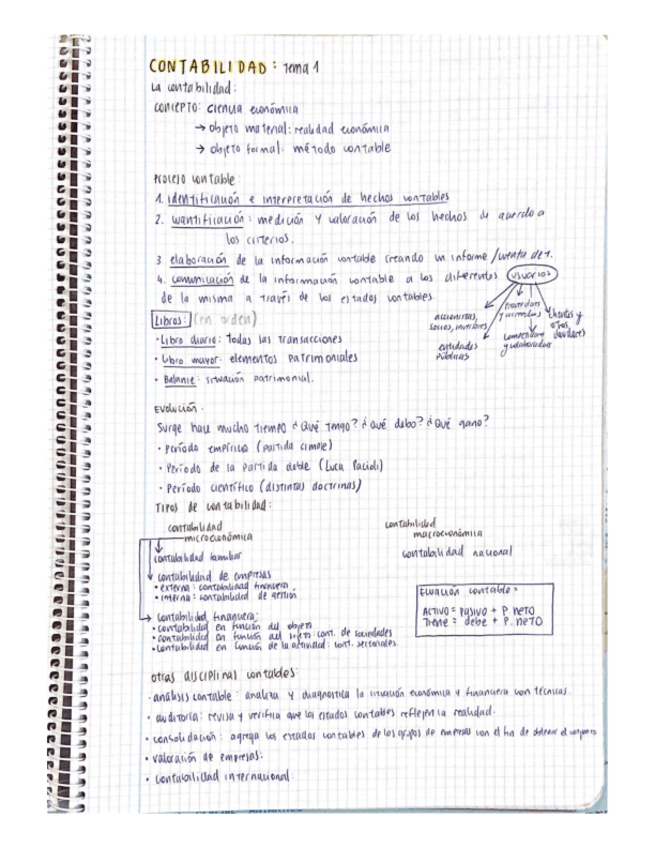 CONTABILIDAD: Tema 1
La contabilidad:
concepto: ciencia económica
→ objeto material: realidad económica
→ objeto formal: método contable
Proceso contable:
1. identificación e interpretación de hechos contables
2. cuantificación: medición y valoración de los hechos de acuerdo a
los criterios.
3. elaboración de la información contable creando un informe /cuenta de
4. comunicación de la información contable a los diferentes usuarios
de la misma a través de los estados contables.
accionistas,
socios, inversores
entidades
públicas
clientes y
otros
deudores
Libros: (en orden)
• Libro diario: todas las transacciones
• Libro mayor: elementos patrimoniales
• Balance: situación patrimonial.
Evolución.
Surge hace mucho tiempo ¿Qué tengo? ¿Qué debo? ¿Qué gano?
• Período empírico (partida simple)
• Período de la partida doble (Luca Pacioli)
• Período científico (distintas doctrinas)
Tipos de contabilidad:
contabilidad
microeconómica
contabilidad
macroeconómica
contabilidad familiar
contabilidad nacional
contabilidad de empresas
• externa: contabilidad financiera
• interna: contabilidad de gestión
Ecuación contable:
ACTIVO = Pasivo + P. neto
Tiene = debe + P. neto
contabilidad financiera:
• contabilidad en función del objeto
• contabilidad en función del sujeto: cont. de sociedades
• contabilidad en función de la actividad: cont. sectoriales.
otras disciplinas contables:
• análisis contable: analiza y diagnostica la situación económica y financiera con técnicas.
• auditoría: revisa y verifica que los estados contables reflejen la realidad.
• consolidación: agrega los estados contables de los grupos de empresas con el fin de obtener el conjunto
• valoración de empresas.
• contabilidad internacional.